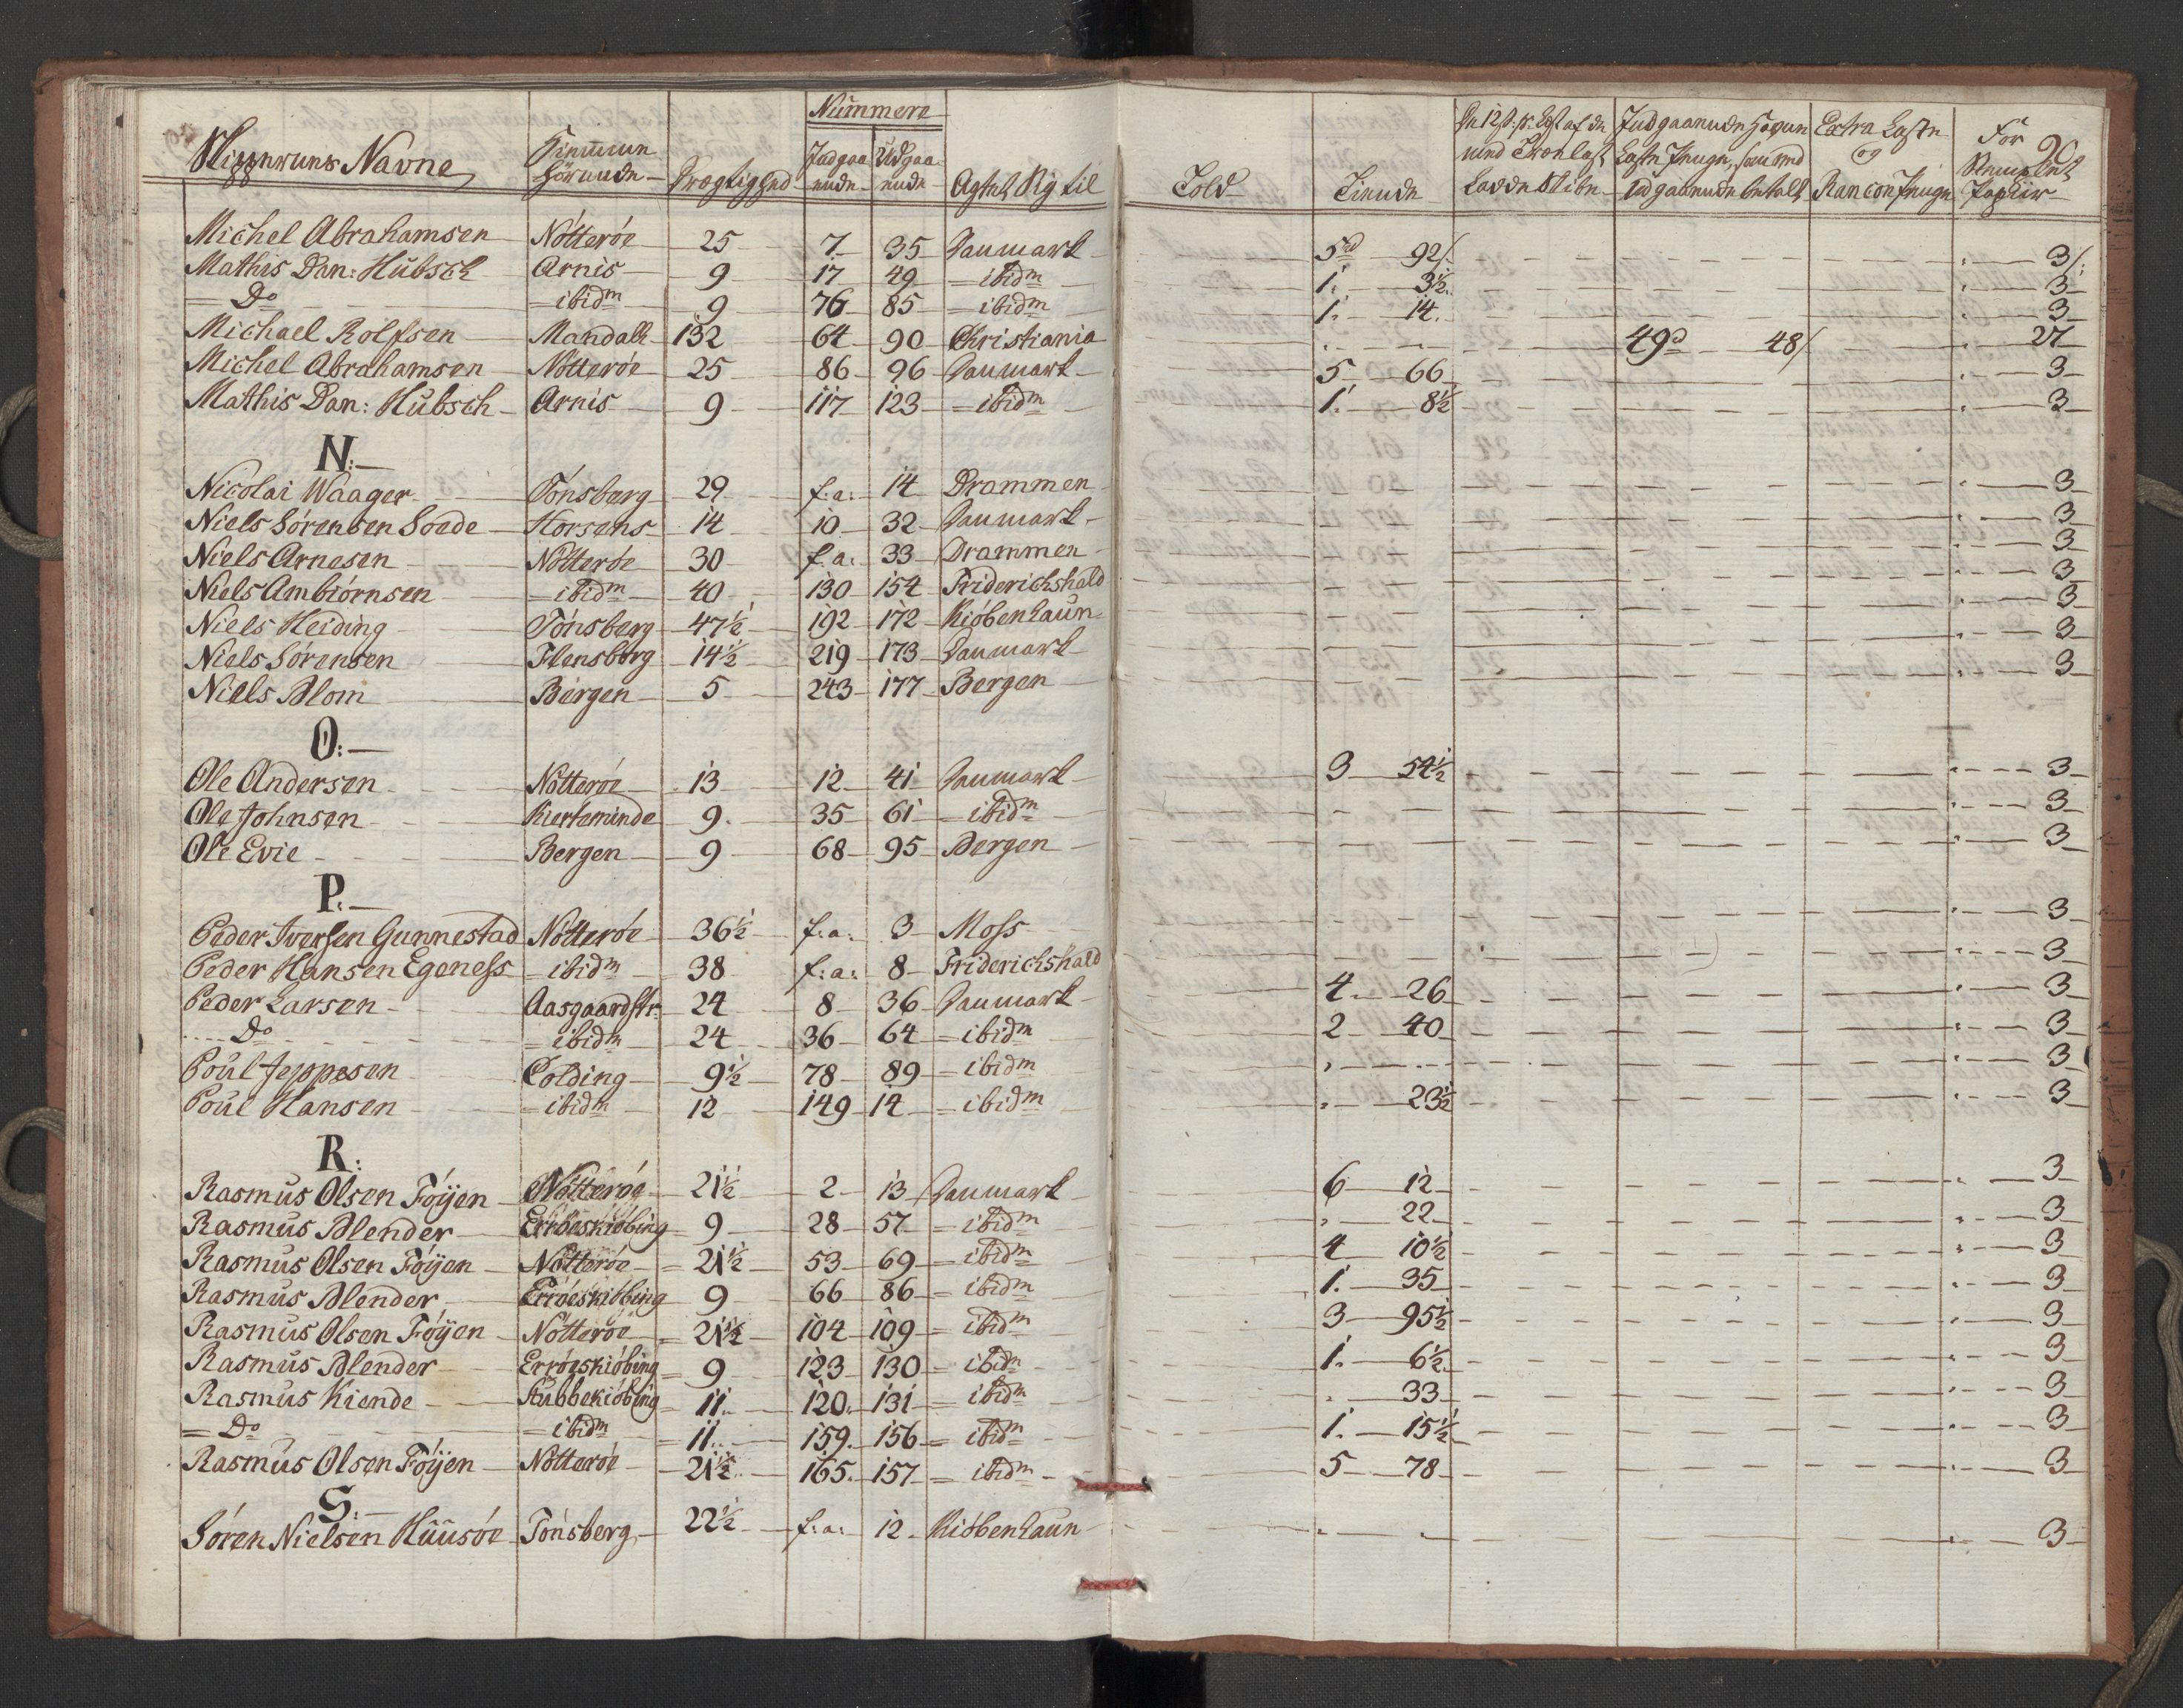 Nummere
Skippernes Navne Hiemmen Hörende Drægtighed Indgaaende Udgaaende Agtet Sig til Told Tiende For Stemplet Papiir 90
Indgaaende Havne Laste Penge, som med Udgaaende betalt
Extra Laste og Rancon Penge
Michel Abrahamsen Nötteröe 25 7 35 Danmark 5rd 92s 3s
Mathis Dan: Hübsch Arnis 9 17 49 ibidm 1. 3½ 3
Do ibidm 9 76 85 ibidm 1. 14. 3
Michael Rolfsen Mandahl 132 64 90 Christiania 49d 48s 27
Michel Abrahamsen Nötteröe 25 86 96 Danmark 5 66 3
Mathis Dan: Hübsch Arnis 9 117 123 ibidm 1. 8½ 3
N:
Nicolai Waager Tönsberg 29 f:a: 14 Drammen 3
Niels Sörensen Soede Horsens 14 10 32 Danmark 3
Niels Arnesen Nötteröe 30 f:a: 33 Drammen 3
Niels Ambiörnsen ibidm 40 130 154 Friderichshald 3
Niels Heiding Tönsberg 47½ 192 172 Kiöbenhaun 3
Niels Sörensen Flensborg 14½ 219 173 Danmark 3
Niels Blom Bergen 5 243 177 Bergen 3
O:
Ole Andersen Nötteröe 13 12 41 Danmark 3 54½ 3
Ole Johnsen Kierteminde 9. 35 61 ibidm 3
Ole Evie Bergen 9 68 95 Bergen 3
P:
Peder Iversen Gunnestad Nötteröe 36½ f:a: 3 Moss 3
Peder Hansen Egeness ibidm 38 f:a: 8 Friderichshald 3
Peder Larsen Aasgaardstr: 24 8 36 Danmark 4 26 3
Do ibidm 24 36 64 ibidm 2 40 3
Poul Jeppesen Colding 9½ 78 89 ibidm 3
Poul Hansen ibidm 12 149 14 ibidm 23½ 3
R:
Rasmus Olsen Föÿen Nötteröe 21½ 2 13 Danmark 6 12 3
Rasmus Blender Erröeskiöbing 9 28 57 ibidm 22 3
Rasmus Olsen Föÿen Nötteröe 21½ 53 69 ibidm 4 10½ 3
Rasmus Blender Erröeskiöbing 9 66 86 ibidm 1. 35 3
Rasmus Olsen Föÿen Nötteröe 21½ 104 109 ibidm 3 95½ 3
Rasmus Blender Erröeskiöbing 9 123 130 ibidm 1. 6½ 3
Rasmus Kiende Stubbekiöbing 11. 120. 131 ibidm 33 3
Do ibidm 11. 159. 156 ibidm 1. 15½ 3
Rasmus Olsen Föÿen Nötteröe 21½ 165. 157 ibidm 5 78 3
S:
Sören Nielsen Huusöe Tönsberg 22½ f:a: 12. Kiöbenhaun 3